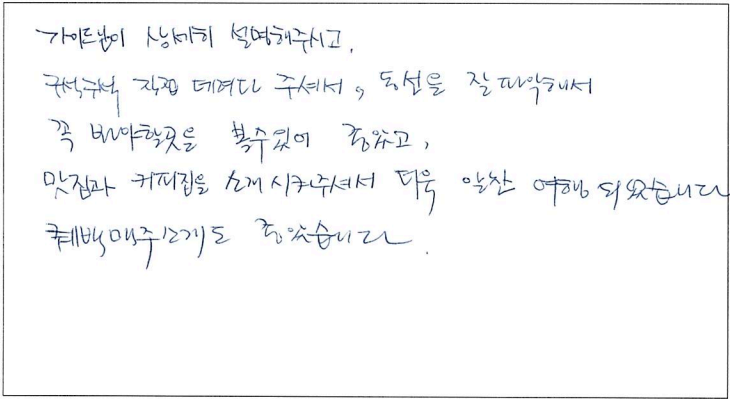 가이드님이 상세히 설명해주시고,
구석구석 직접 데려다 주셔서, 동선을 잘 파악해서
꼭 봐야할곳을 볼수있어 좋았고,
맛집과 커피집을 소개시켜주셔서 더욱 알찬 여행 되었습니다
맥주소개도 좋았습니다.